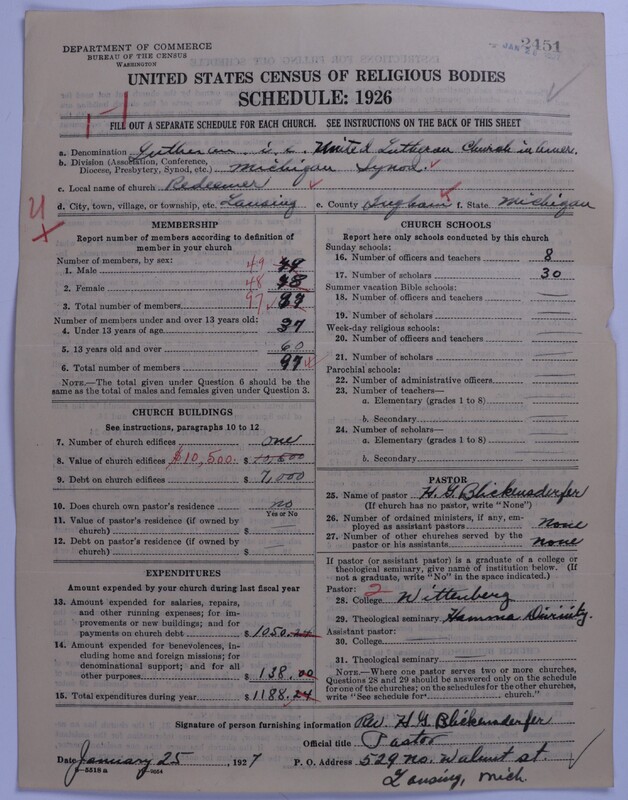 DEPARTMENT OF COMMERCE
BUREAU OF THE CENSUS
WASHINGTON
2451
UNITED STATES CENSUS OF RELIGIOUS BODIES
SCHEDULE: 1926
1-1
FILL OUT A SEPARATE SCHEDULE FOR EACH CHURCH. SEE INSTRUCTIONS ON THE BACK OF THIS SHEET
a. Denomination Lutheran i.e. United Lutheran Church in Amer.
b. Division (Association, Conference,
Diocese, Presbytery, Synod, etc.) Michigan Synod.
c. Local name of church Redeemer
d. City, town, village, or township, etc. Lansing e. County Ingham f. State Michigan
MEMBERSHIP
Report number of members according to definition of
member in your church
Number of members, by sex:
1. Male 49
2. Female 48
3. Total number of members 97
Number of members under and over 13 years old:
4. Under 13 years of age 37
5. 13 years old and over 60
6. Total number of members 97
NOTE.—The total given under Question 6 should be the
same as the total of males and females given under Question 3.
CHURCH BUILDINGS
See instructions, paragraphs 10 to 12
7. Number of church edifices one
8. Value of church edifices $10,500. $ 10,500
9. Debt on church edifices $ 7,000
10. Does church own pastor's residence no
Yes or No
11. Value of pastor's residence (if owned by
church) $
12. Debt on pastor's residence (if owned by
church) $
EXPENDITURES
Amount expended by your church during last fiscal year
13. Amount expended for salaries, repairs,
and other running expenses; for im-
provements or new buildings; and for
payments on church debt $ 1050.24
14. Amount expended for benevolences, in-
cluding home and foreign missions; for
denominational support; and for all
other purposes $ 138.00
15. Total expenditures during year $ 1188.24
CHURCH SCHOOLS
Report here only schools conducted by this church
Sunday schools:
16. Number of officers and teachers 8
17. Number of scholars 30
Summer vacation Bible schools:
18. Number of officers and teachers
19. Number of scholars
Week-day religious schools:
20. Number of officers and teachers
21. Number of scholars
Parochial schools:
22. Number of administrative officers
23. Number of teachers—
a. Elementary (grades 1 to 8)
b. Secondary
24. Number of scholars—
a. Elementary (grades 1 to 8)
b. Secondary
PASTOR
25. Name of pastor H. G. Blickensdorfer
(If church has no pastor, write "None")
26. Number of ordained ministers, if any, em-
ployed as assistant pastors none
27. Number of other churches served by the
pastor or his assistants none
If pastor (or assistant pastor) is a graduate of a college or
theological seminary, give name of institution below. (If
not a graduate, write "No" in the space indicated.)
Pastor: 2
28. College Wittenberg
29. Theological seminary Hamma Divinity.
Assistant pastor:
30. College
31. Theological seminary
NOTE.—Where one pastor serves two or more churches,
Questions 28 and 29 should be answered only on the schedule
for one of the churches; on the schedules for the other churches,
write "See schedule for church.
Signature of person furnishing information Rev. H G Blickensdorfer
Official title Pastor
Date January 25, 1927 P. O. Address 529 No. Walnut st.
8-5518a
Lansing, Mich.